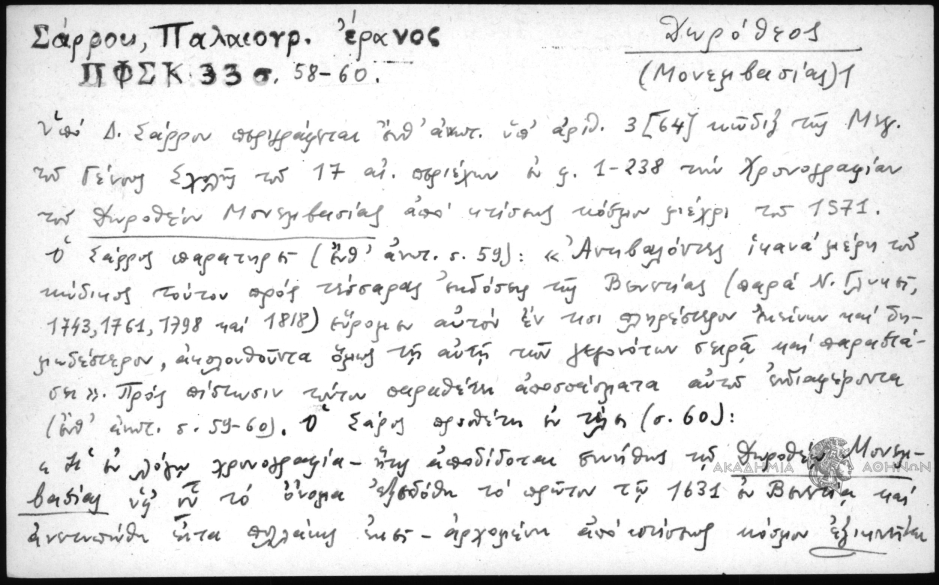 Σάρρου, Παλαιογρ. ἔρανος
ΠΦΣΚ 33 σ. 58-60.
Δωρόθεος
(Μονεμβασίας) 1
Ὑπό Δ. Σάρρου περιγράφεται ἔνθ' ἀνωτ. ὑπ' ἀριθ. 3 [64] κῶδιξ τῆς Μεγ.
τοῦ Γένους Σχολῆς τοῦ 17 αἰ. περιέχων ἐν φ. 1-238 τήν Χρονογραφίαν
τοῦ Δωροθέου Μονεμβασίας ἀπό κτίσεως κόσμου μέχρι τοῦ 1571.
Ὁ Σάρρος παρατηρεῖ (ἔνθ' ἀνωτ. σ. 59): «Ἀντιβαλόντες ἱκανά μέρη τοῦ
κώδικος τούτου πρός τέσσαρας ἐκδόσεις τῆς Βενετίας (παρά Ν. Γλυκεῖ,
1743, 1761, 1798 καί 1818) εὕρομεν αὐτόν ἔν τισι πληρέστερον ἐκείνων καί δη-
μωδέστερον, ἀκολουθοῦντα ὅμως τῇ αὐτῇ τῶν γεγονότων σειρᾷ καί παραστά-
σει». Πρός πίστωσιν τούτου παραθέτει ἀποσπάσματα αὐτοῦ ἐνδιαφέροντα
(ἔνθ' ἀνωτ. σ. 59-60). Ὁ Σάρρος προσθέτει ἐν τέλει (σ. 60):
«Ἡ ἐν λόγῳ χρονογραφία - ἥτις ἀποδίδοται συνήθως τῷ Δωροθέῳ Μονεμ-
βασίας ὑφ' οὗ τό ὄνομα ἐξεδόθη τό πρῶτον τῷ 1631 ἐν Βενετίᾳ καί
ἀνετυπώθη εἶτα πολλάκις ἐκεῖ - ἀρχομένη ἀπό κτίσεως κόσμου ἐξικνεῖται
ΑΚΑΔΗΜΙΑ ΑΘΗΝΩΝ